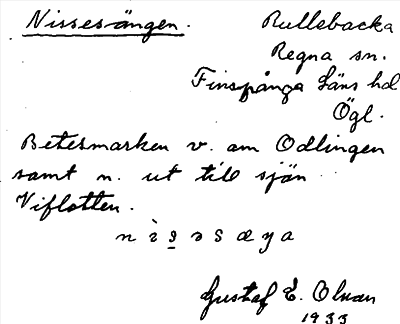 Nissesängen. Rullebacka
Regna sn.
Finspånga läns hd
Ögl.
Betesmarken v. om Odlingen
samt n. ut till sjön
Viflotten.
Gustaf E. Olsson
1933